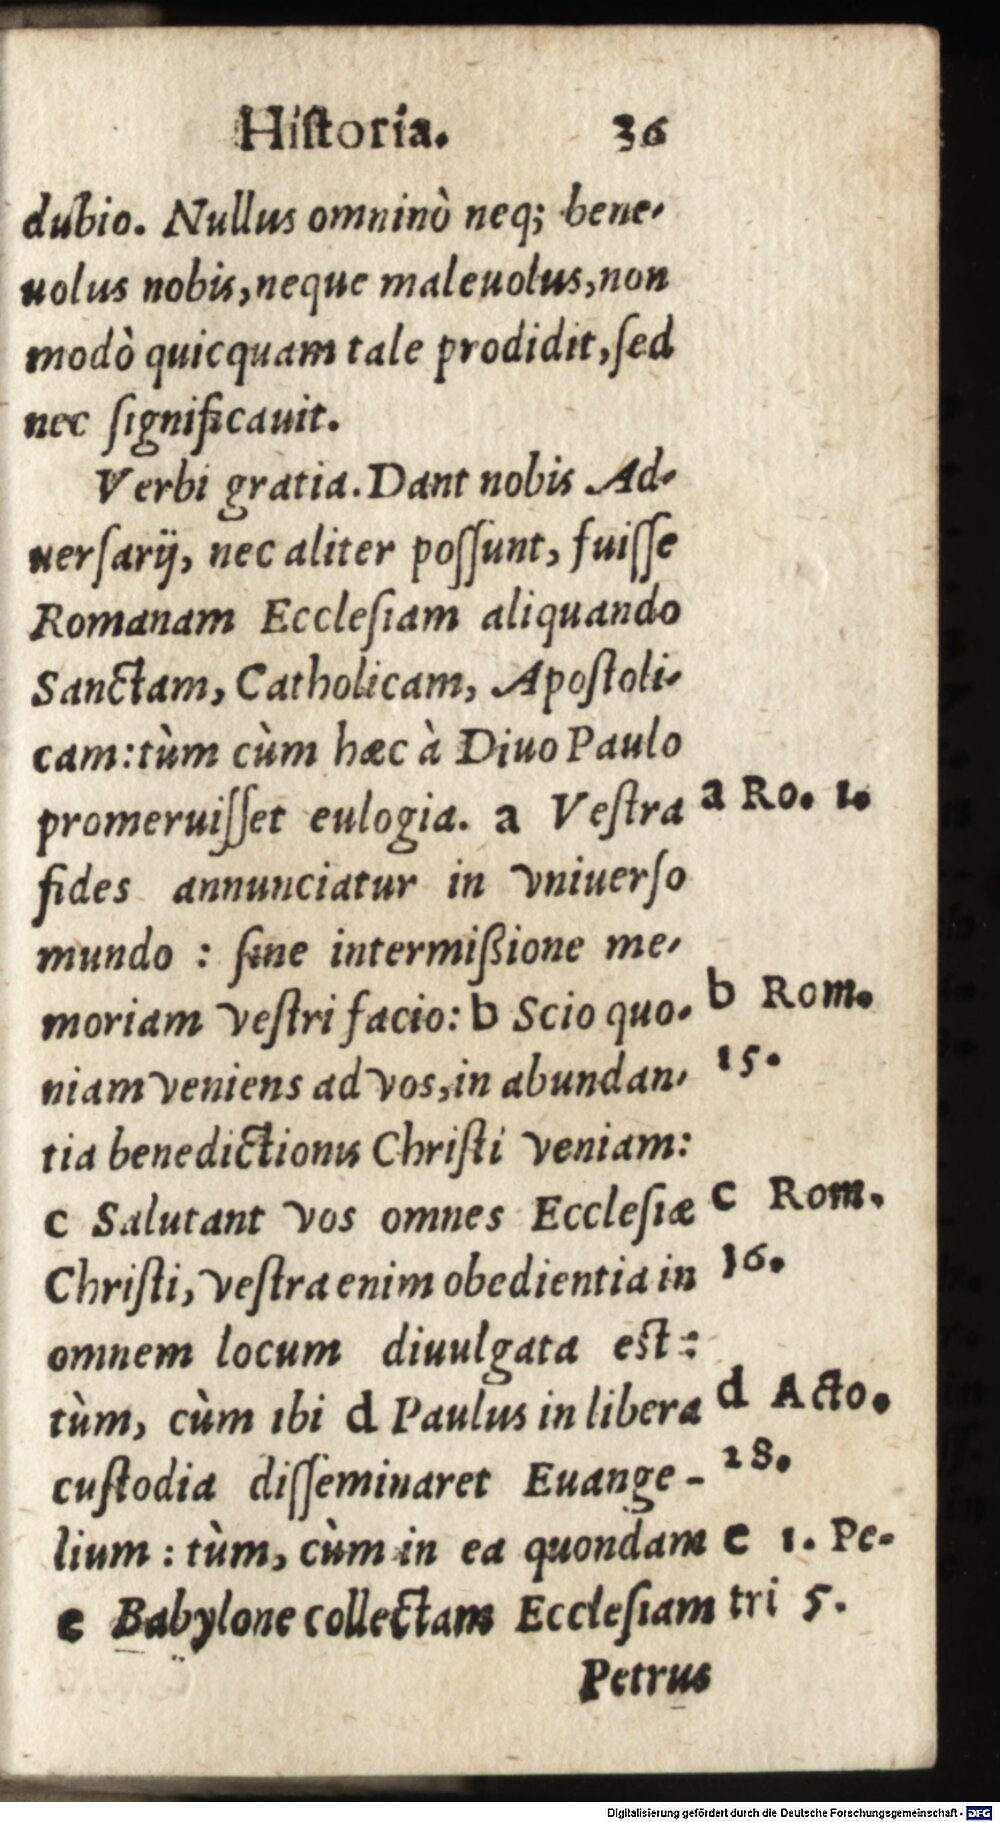 Hiſtoria. 36
dubio. Nullus omninò neq; bene-
uolus nobis, neque maleuolus, non
modò quicquam tale prodidit, ſed
nec ſignificauit.
Verbi gratia. Dant nobis Ad-
uerſarij, nec aliter poſſunt, fuiſſe
Romanam Eccleſiam aliquando
Sanctam, Catholicam, Apoſtoli-
cam: tùm cùm hæc à Diuo Paulo
promeruiſſet eulogia. a Veſtra a Ro. 1.
fides annunciatur in vniuerſo
mundo : ſine intermißione me-
moriam veſtri facio: b Scio quo- b Rom.
niam veniens ad vos, in abundan- 15.
tia benedictionis Chriſti veniam:
c Salutant vos omnes Eccleſiæ c Rom.
Chriſti, veſtra enim obedientia in 16.
omnem locum diuulgata eſt:
tùm, cùm ibi d Paulus in libera d Acto.
cuſtodia diſſeminaret Euange- 28.
lium : tùm, cùm in ea quondam e 1. Pe-
e Babylone collectam Eccleſiam tri 5.
Petrus
Digitalisierung gefördert durch die Deutsche Forschungsgemeinschaft - DFG